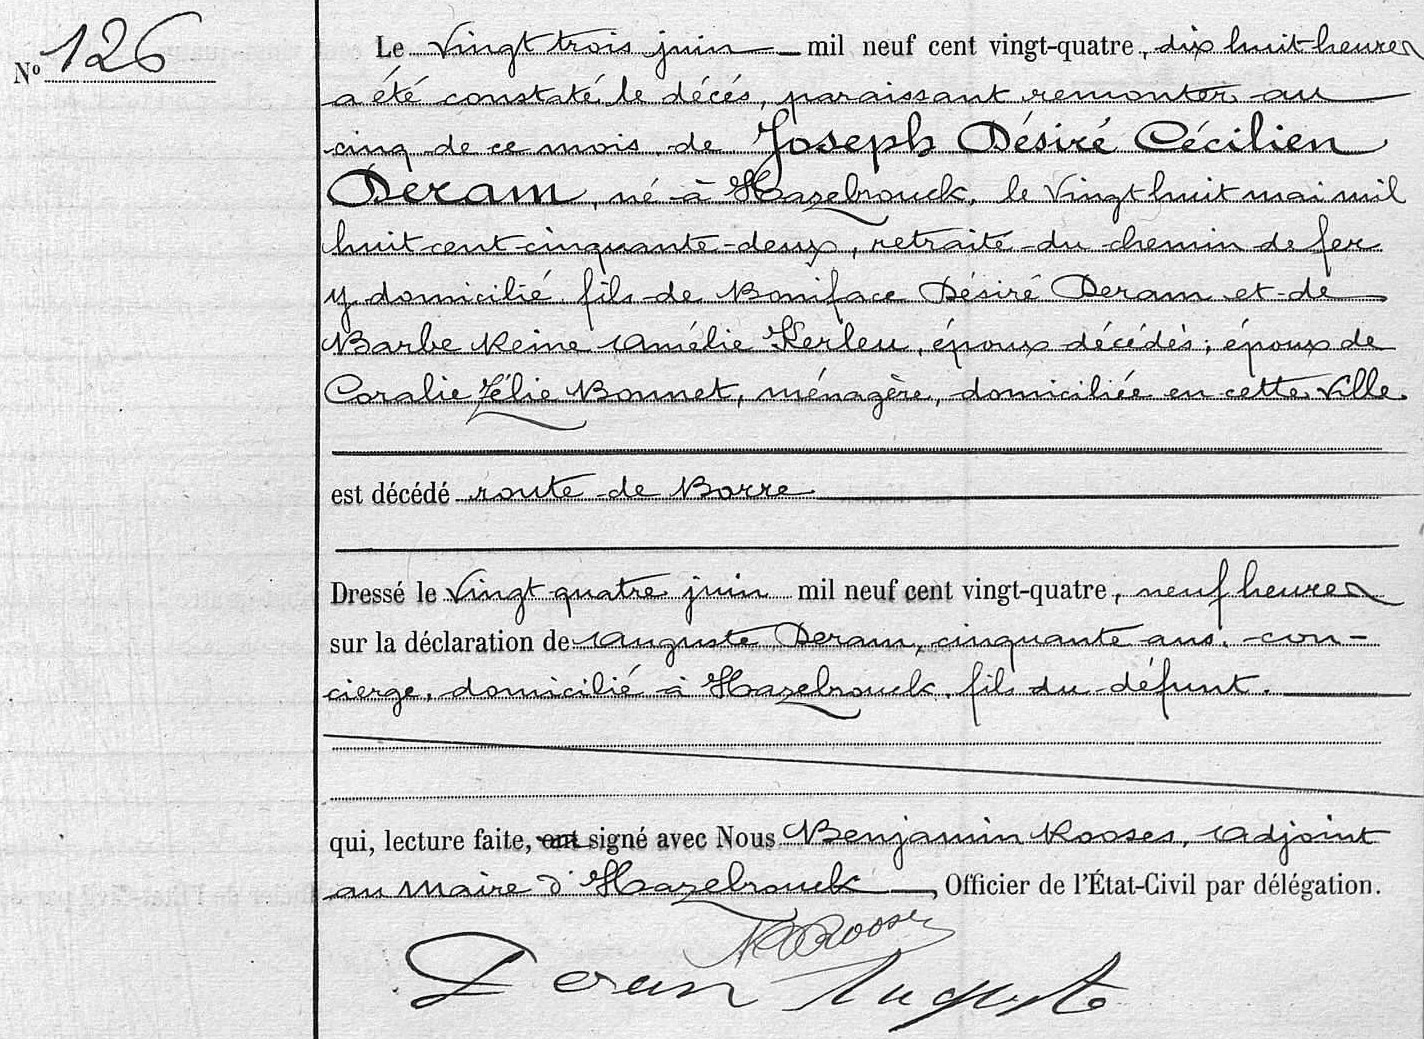 N° 126
Le vingt trois juin mil neuf cent vingt-quatre, dix huit heures
a été constaté le décés, paraissant remonter au
cinq de ce mois de Joseph Désiré Cécilien
Deram, né à Hazebrouck, le vingt huit mai mil
huit cent cinquante-deux, retraité du chemin de fer
y domicilié fils de Boniface Désiré Deram et de
Barbe Reine Amélie Kerleu, époux décédés; époux de
Coralie Zélie Bonnet, ménagère, domiciliée en cette ville
est décédé route de Borre
Dressé le vingt quatre juin mil neuf cent vingt-quatre, neuf heures
sur la déclaration de Auguste Deram, cinquante ans, con-
cierge, domicilié à Hazebrouck, fils du défunt.
qui, lecture faite, ont signé avec Nous Benjamin Rooses, Adjoint
au Maire d'Hazebrouck, Officier de l'État-Civil par délégation.
Rooses
Deram Auguste